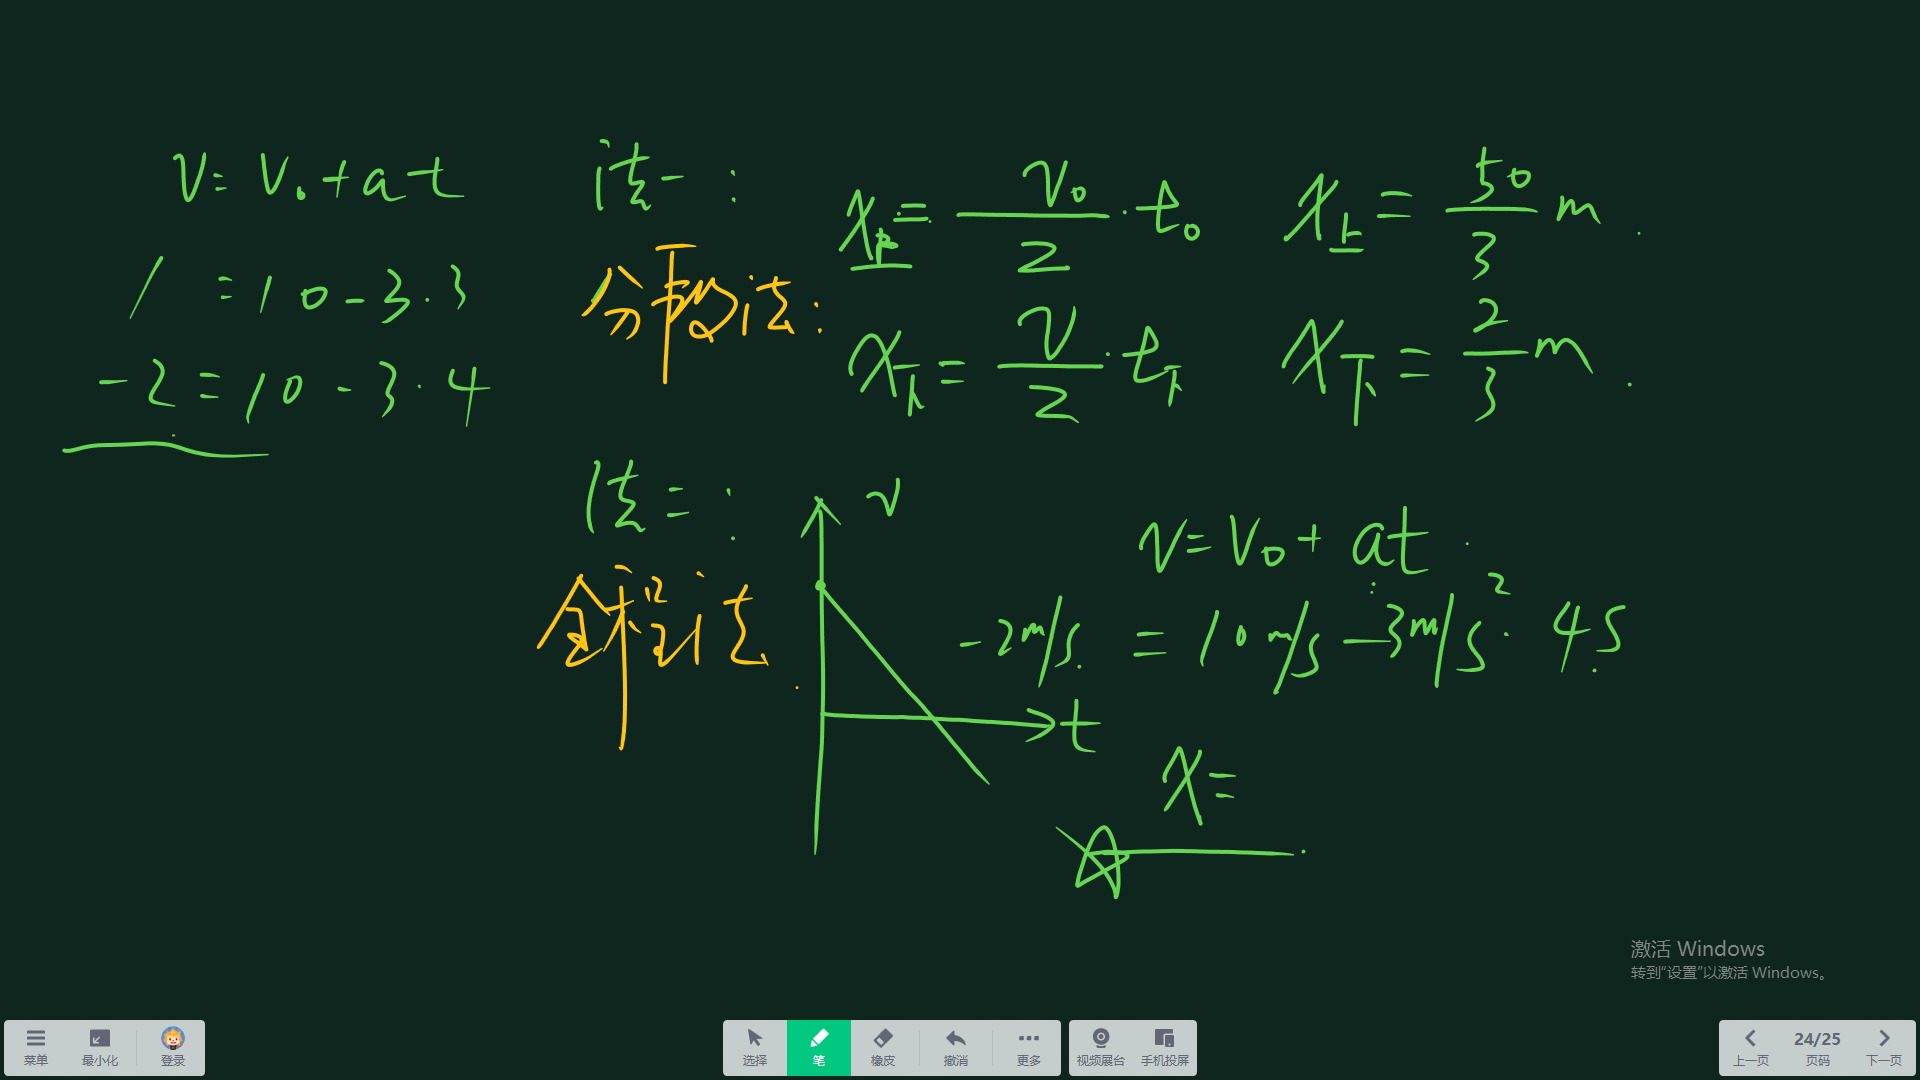 v = v₀ + at
1 = 10 - 3·3
-2 = 10 - 3·4
法一：
分段法：
x上 = v₀/2 · t₀
x上 = 50/3 m.
x下 = v/2 · t下
x下 = 2/3 m.
法二：
全程法
v
t
v = v₀ + at
-2m/s = 10m/s - 3m/s² · 4s
x =
激活 Windows
转到“设置”以激活 Windows。
菜单
最小化
登录
选择
笔
橡皮
撤消
更多
视频展台
手机投屏
上一页
24/25
页码
下一页